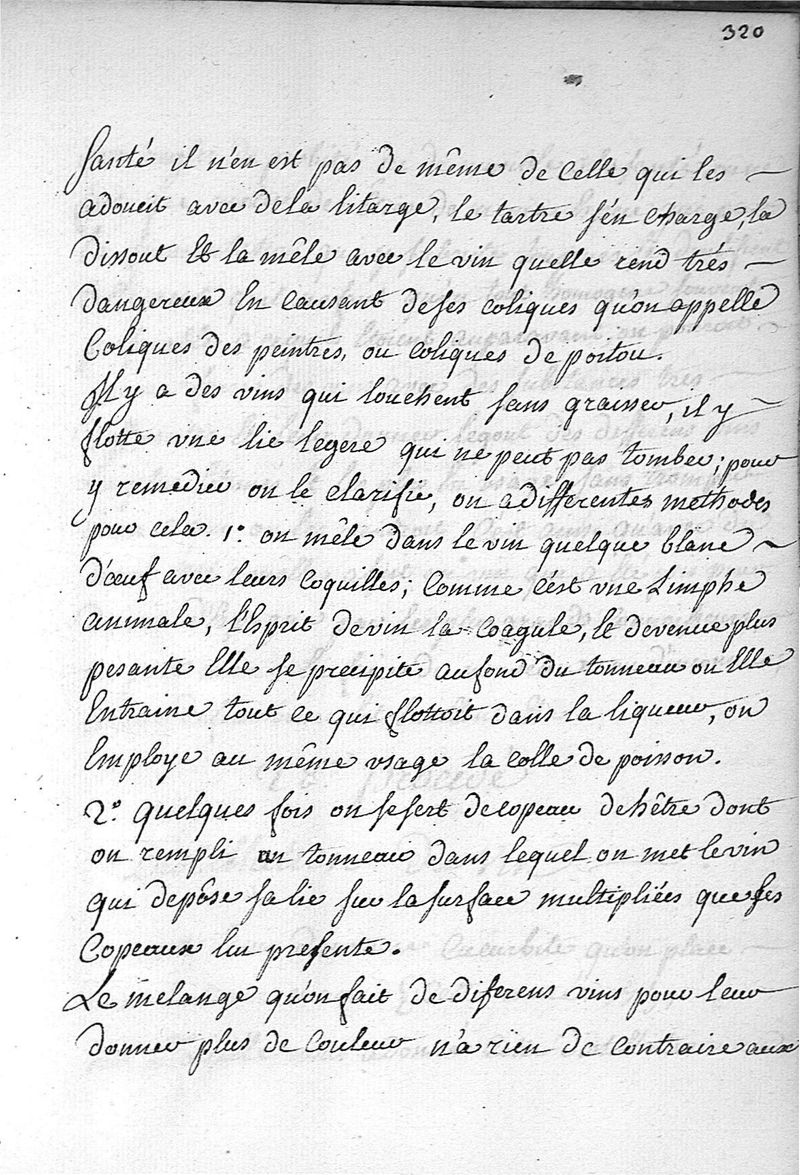 320
santé il n'en est pas de même de celle qui les
adoucit avec de la litarge, le tartre s'en charge, la
dissout et la mêle avec le vin quelle rend trés
dangereux en causant de ses coliques qu'on appelle
Coliques des peintres, ou coliques de poitou.
Il y a des vins qui louchent sans graisser, il y
flotte une lie legere qui ne peut pas tomber; pour
y remedier on le clarifie, on a differentes methodes
pour cela. 1° on mêle dans le vin quelque blanc
d'œuf avec leurs coquilles; comme c'est une Limphe
animale, l'Esprit de vin la coagule, et devenue plus
pesante Elle se precipite au fond du tonneau ou Elle
Entraine tout ce qui flottoit dans la liqueur, on
Employe au même usage la colle de poisson.
2° quelques fois on se sert de copeau de hêtre dont
on rempli un tonneau dans lequel on met le vin
qui depôse sa lie sur la surface multipliées que ses
Copeaux lui presente.
Le melange qu'on fait de diferens vins pour leur
donner plus de couleur n'a rien de contraire aux